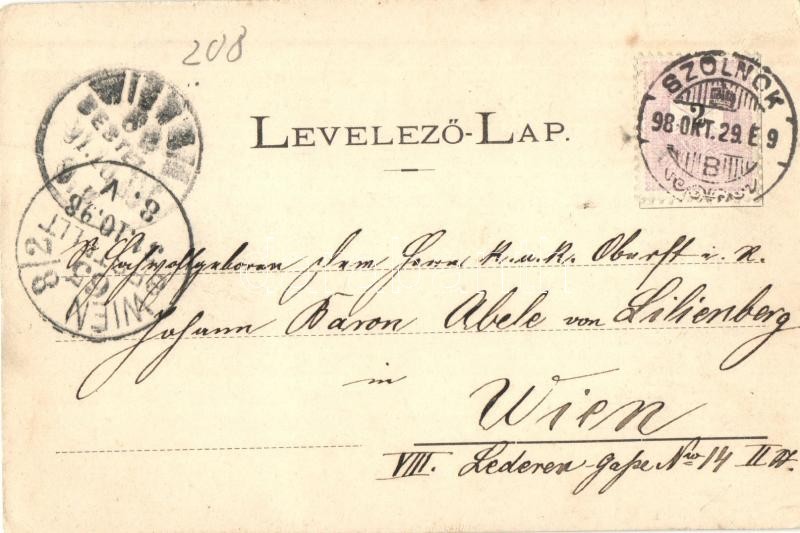 208
LEVELEZŐ-LAP.
SZOLNOK
2
98 OKT. 29. E 9
B
BESTELLT
WIEN 8/2
63
31.10.98
8.V
Sr Hochwohlgeboren dem Herrn k.u.k. Oberst i.R.
Johann Baron Abele von Lilienberg
in
Wien
VIII. Lederer Gaße No 14 II